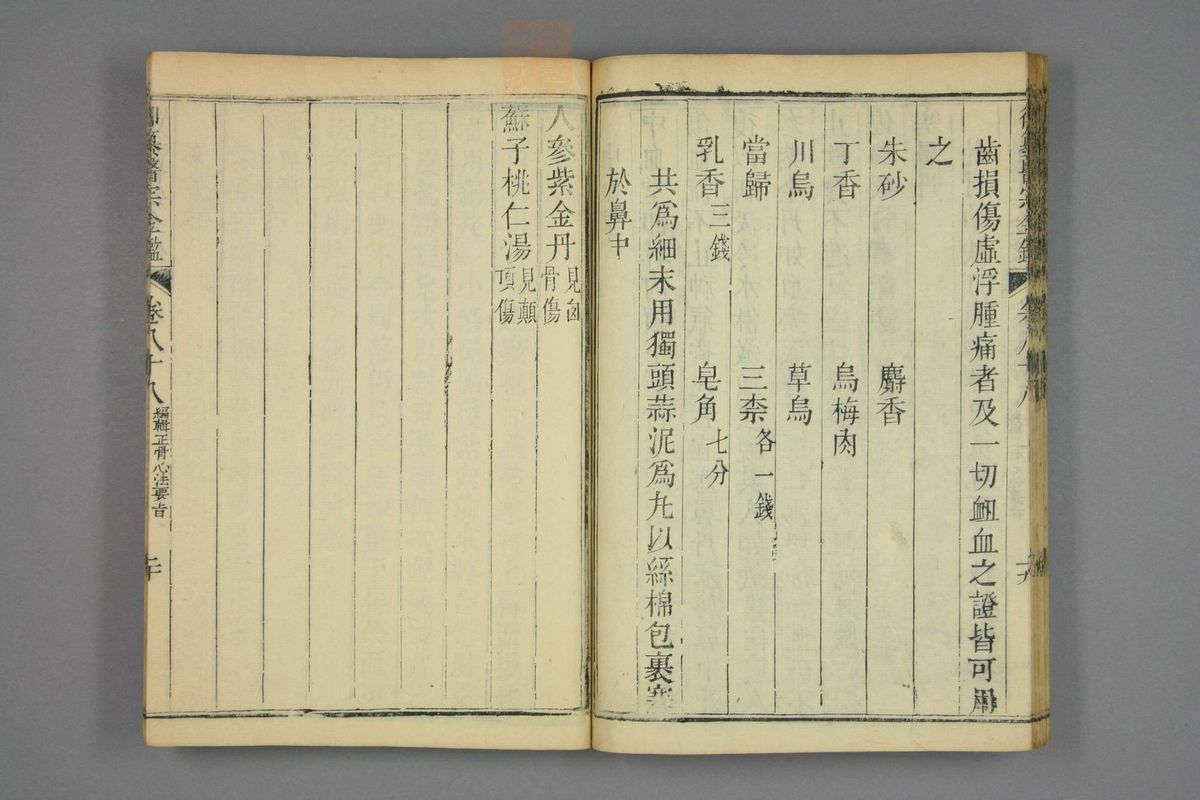 齒損傷虛浮腫痛者及一切衄血之證皆可用
之
朱砂 麝香
丁香 烏梅肉
川烏 草烏
當歸 三柰各一錢
乳香三錢 皂角七分
共爲細末用獨頭蒜泥爲丸以絲棉包裹塞
於鼻中
人參紫金丹見囟骨傷
蘇子桃仁湯見顚頂傷
御纂醫宗金鑑
卷八十八
編輯正骨心法要旨
二十